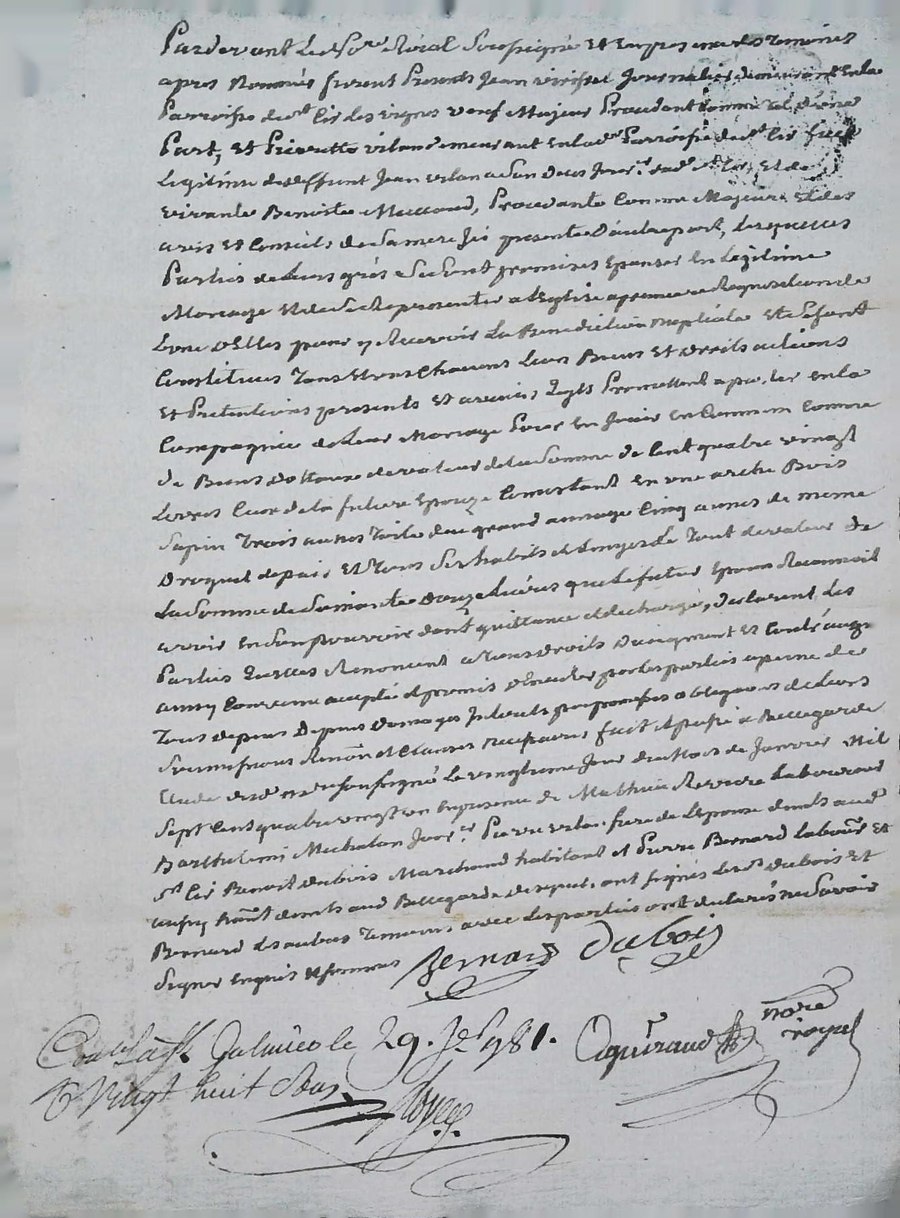 Pardevant Le no.re Roial Soussigné Et En presence des Temoins
apres Nommés furent Presents Jean Jour.er demeurant En la
Parroisse de st Cir des vignes veuf Majeur Procedant Comme tel d'une
Part, Et Pierrette vilan demeurant En lad.e Parroisse de st Cir fille
Legitime de deffunt Jean vilan Jour.r aud. st Cir Et de
vivante Benoiste Procedante Comme Majeure Et des
avis Et Conseils de Sa mere Ici presente d'autre part, Lesquelles
Parties de Leurs grés Se Sont promises Epouser En Legitime
Mariage Et de Se Representer a l'Eglise a premiere Requisition de
Lune d'Elles pour y Recevoir La Benediction nuptiale Et Se Sont
Constitués Tous Et uns Chacuns Leurs Biens Et droits actions
Et Pretentions presents Et avenir, Promettent aporter En la
Compagnie de Leur Mariage Pour En Jouir En Commun Comme
de Biens dottaux de valeur de la Somme de Cent quatre vingt
Livres Ceux de la future Epouze Consistant En une arche Bois
Sapin Trois aunes Toile du grand aunage Cinq aunes de meme
Droguet de païs Et Tous Ses habits et Linges Le Tout de valeur de
La Somme de Soixante Douze Livres que Le futur Epoux Reconnoit
avoir En Son Pouvoir dont quittance et decharge, declarent Les
Parties quelles Renoncent a Tous Droits Daugment Et Contréaugt
ainsy Convenu accepté et promis Executer par Les parties a peine de
Tous depens Domages Interets par promesses obligations de Leurs
Soumissions Renon.on et Clauses necessaires fait Et passé a Bellegarde
Etude du no.re Soussigné Le vingtieme Jour du Mois de Janvier Mil
Sept Cent quatre vingt un En presence de Mathieu Laboureur
Barthelemi Michalon Jour.er Pierre vilan frere de L'Epouse dem.ts aud.
st Cir Benoit Dubois Marchand habitant et Pierre Bernard Labour.r Et
aussy dem.ts aud. Bellegarde desquels ont signés Led.s Dubois Et
Bernard Les autres Temoins avec Les parties ont declarés ne Savoir
Signer Enquis Et Sommés Bernard Dubois
Aguiraud no.re royal
Con.lé a St Galmier le 29. J.er 1781.
R. Vingt huit Sous